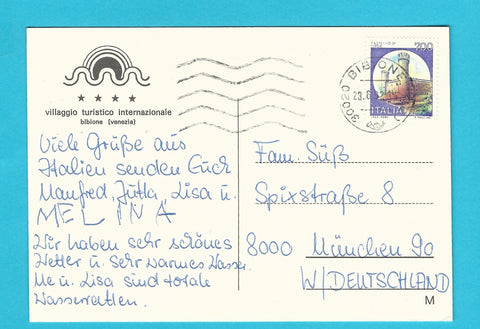 villaggio turistico internazionale
bibione (venezia)
Viele Grüße aus
Italien senden Euch
Manfred, Jutta, Lisa u.
MELINA
Wir haben sehr schönes
Wetter u. sehr warmes Wasser.
Me u. Lisa sind totale
Wasserratten.
700
ITALIA
30020 BIBIONE
23.6
Fam. Süß
Spixstraße 8
8000 München 90
W/DEUTSCHLAND
M